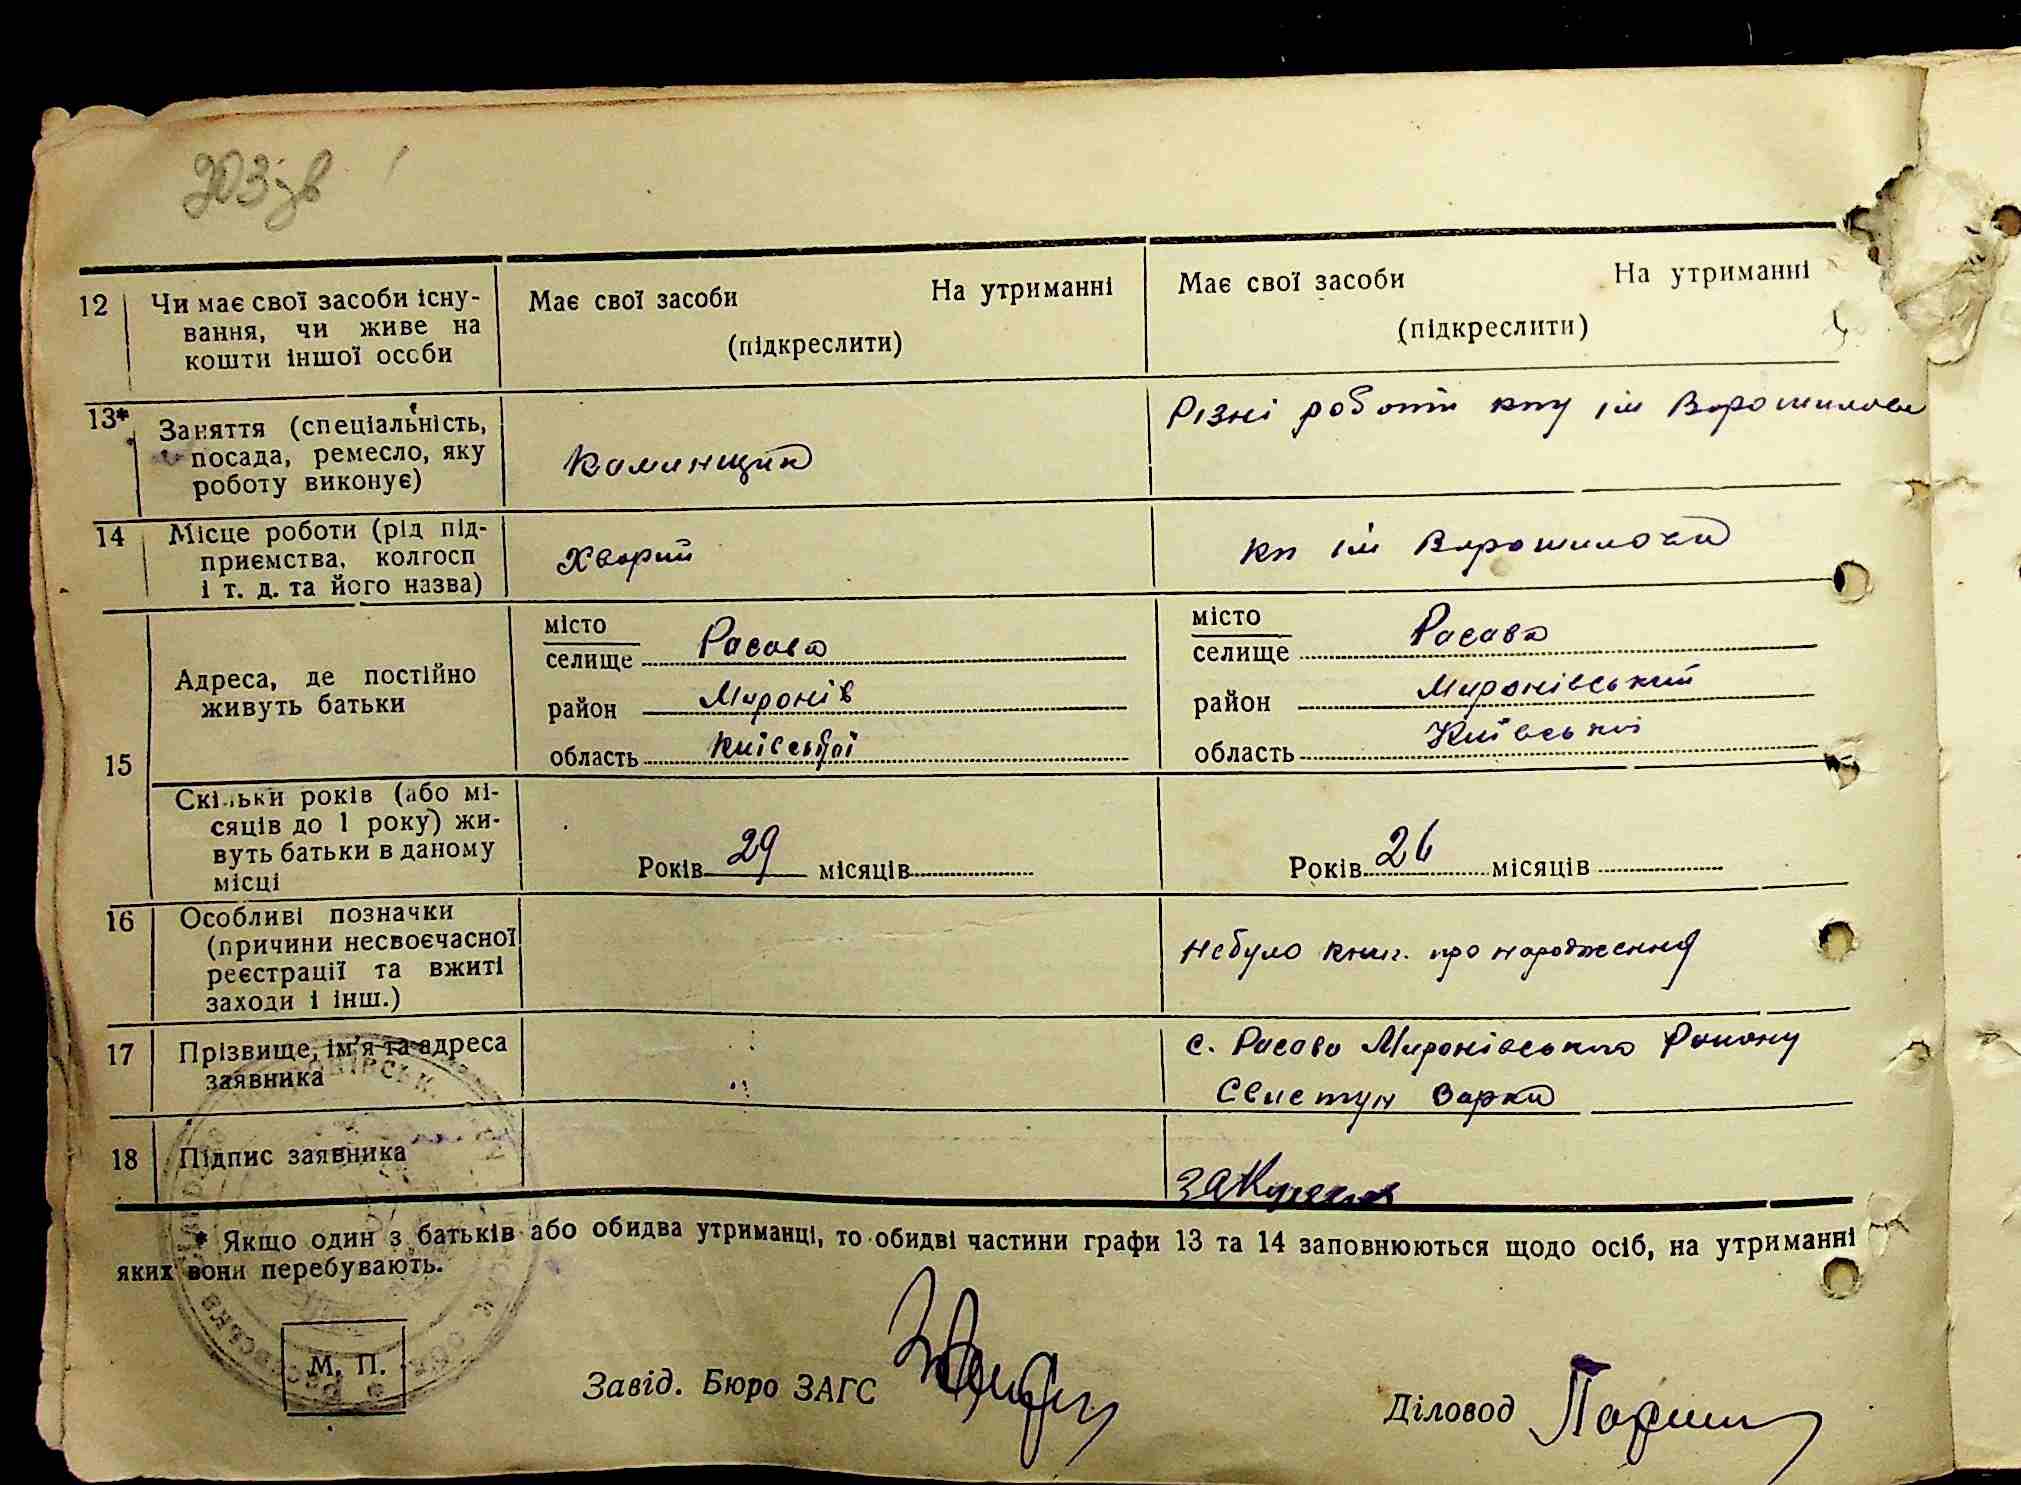 203 зв
12 Чи має свої засоби існу-
вання, чи живе на
кошти іншої особи
Має свої засоби На утриманні
(підкреслити)
Має свої засоби На утриманні
(підкреслити)
13* Заняття (спеціальність,
посада, ремесло, яку
роботу виконує)
Каминщик
Різні роботи кпу ім Ворошилова
14 Місце роботи (рід під-
приємства, колгосп
і т. д. та його назва)
Хворий
кп ім Ворошилова
15 Адреса, де постійно
живуть батьки
місто
селище Расава
район Миронів
область Київської
місто
селище Расава
район Миронівський
область Київські
Скільки років (або мі-
сяців до 1 року) жи-
вуть батьки в даному
місці
Років 29 місяців
Років 26 місяців
16 Особливі позначки
(причини несвоєчасної
реєстрації та вжиті
заходи і інш.)
небуло книг. про народження
17 Прізвище, ім'я та адреса
заявника
с. Расава Миронівського Району
Свистун Варка
18 Підпис заявника
* Якщо один з батьків або обидва утриманці, то обидві частини графи 13 та 14 заповнюються щодо осіб, на утриманні
яких вони перебувають.
М. П.
Завід. Бюро ЗАГС
Діловод